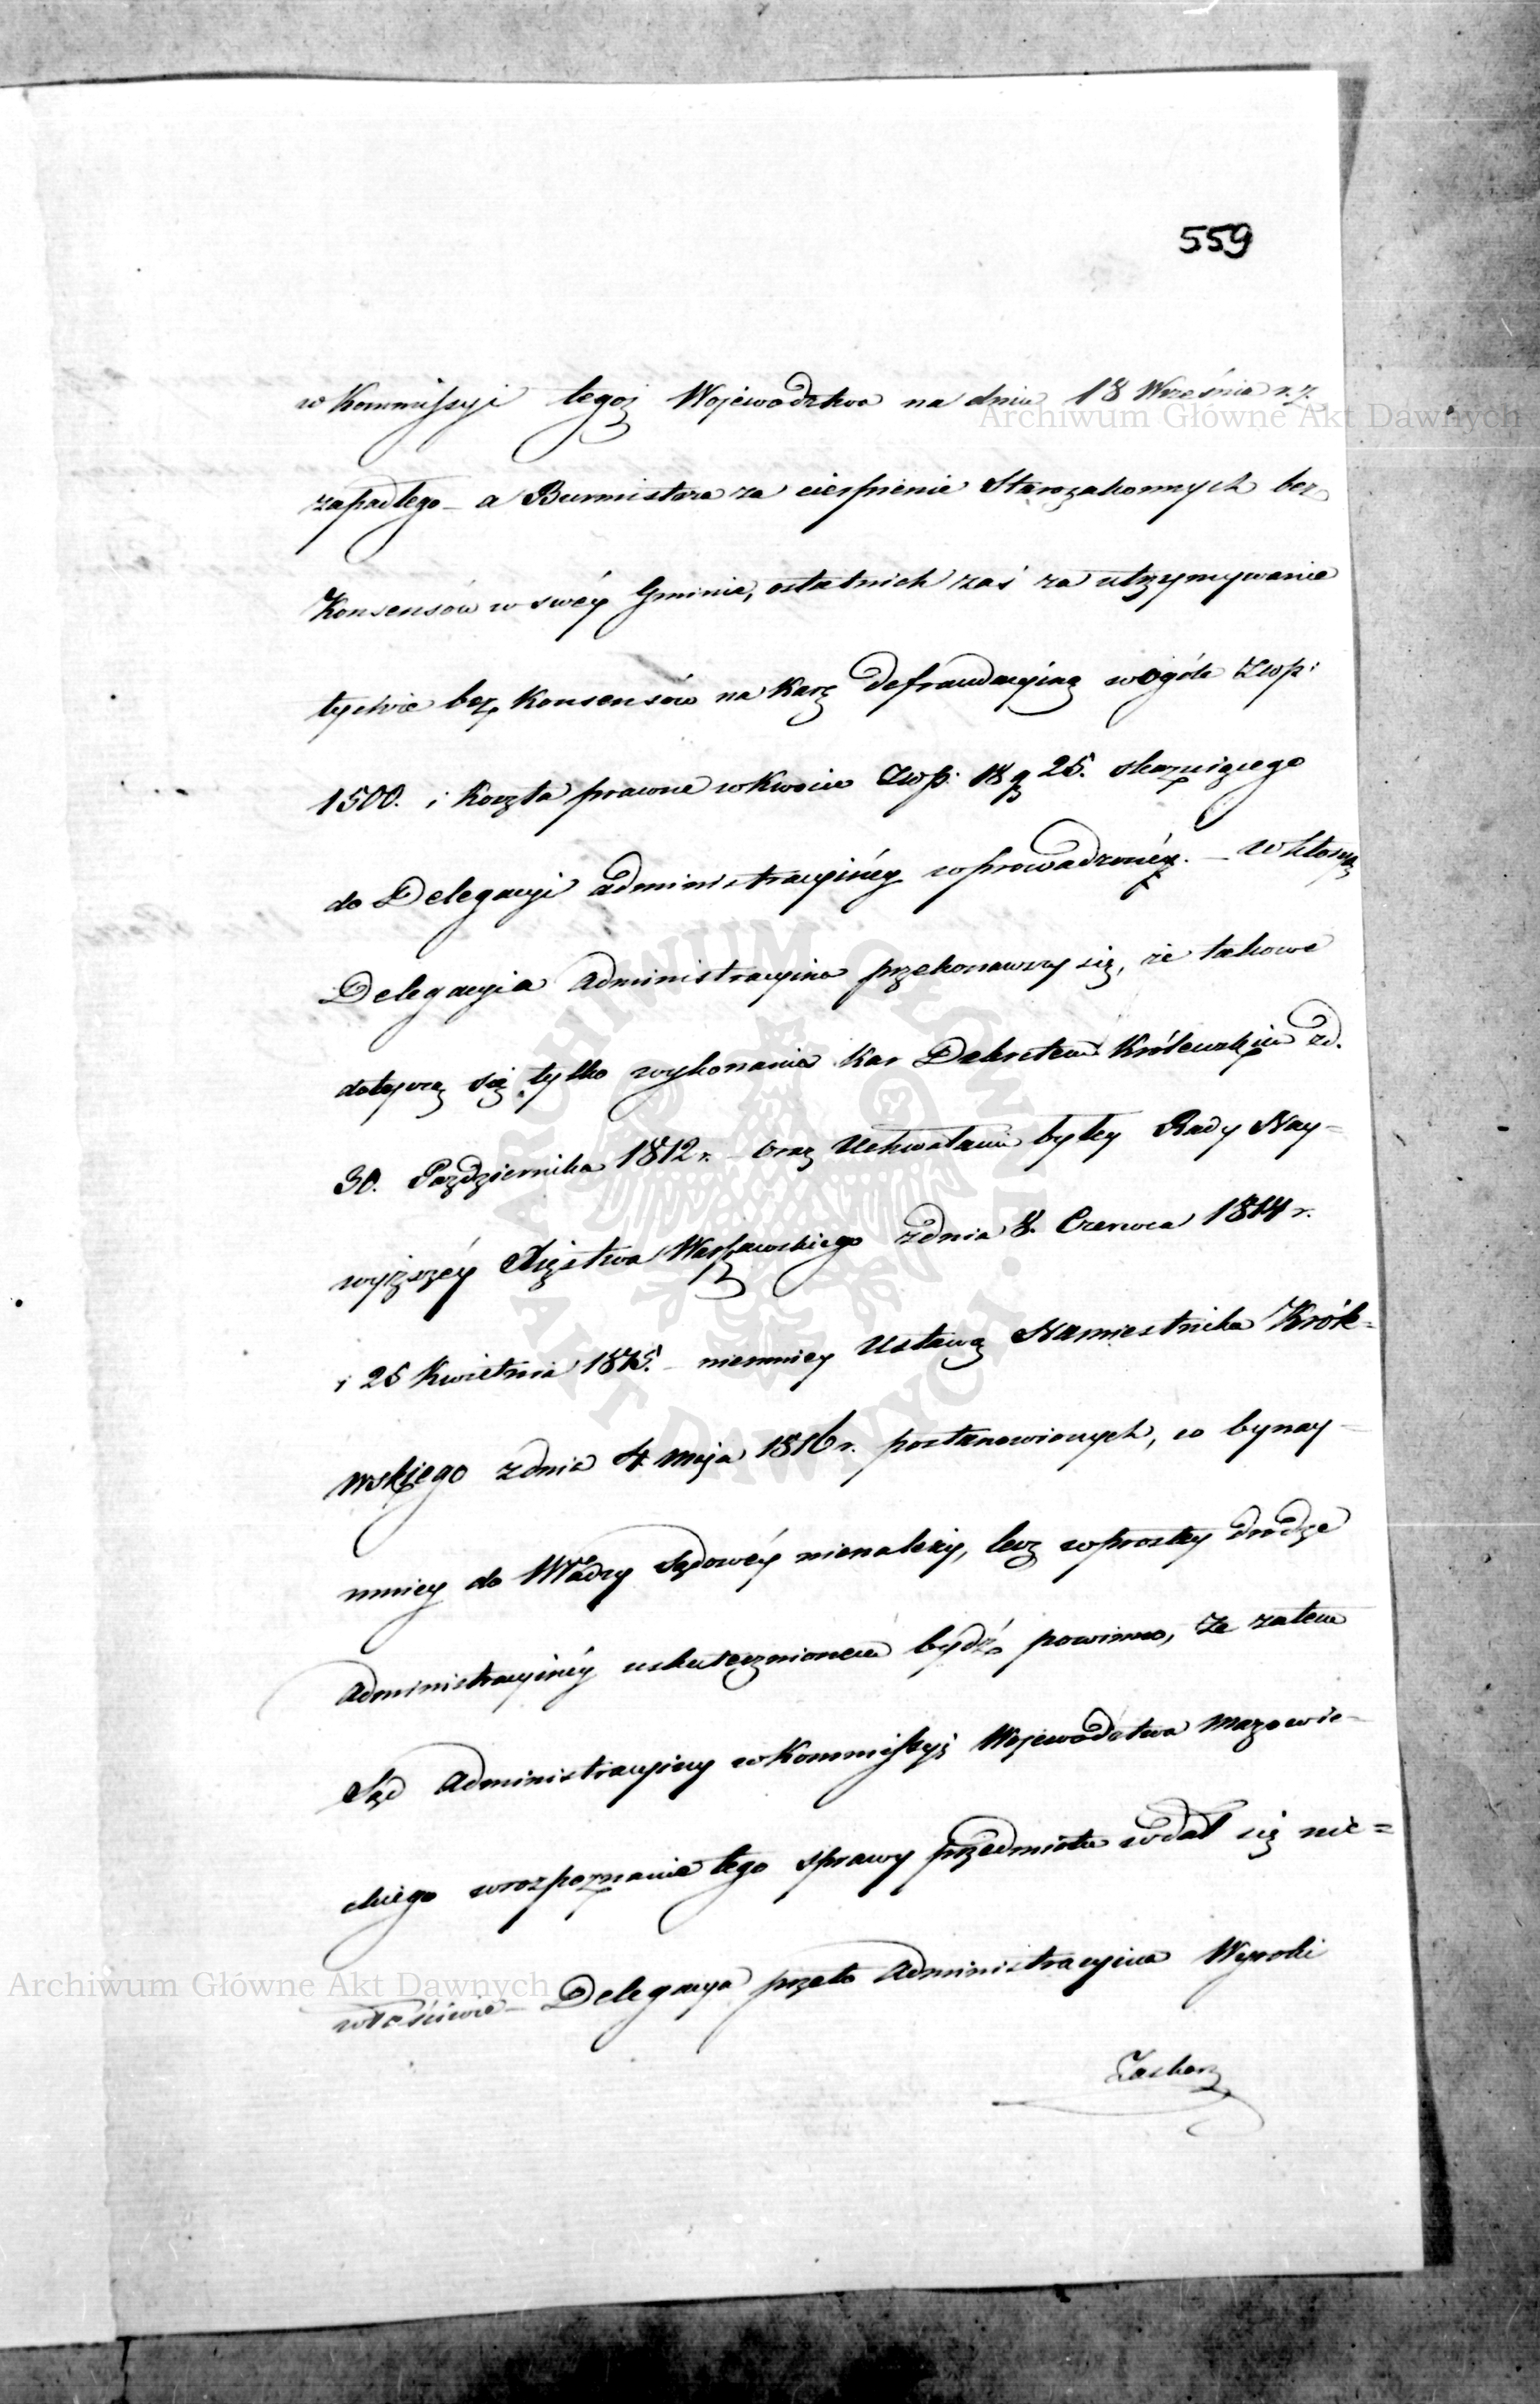 559
w Kommissyi tegoż Wojewodztwa na dniu 18 Września r. z.
zapadłego – a Burmistrza za cierpienie Starozakonnych bez
Konsensów w swéy Gminie, ostatnich zaś za utrzymywanie
tychże bez Konsensów na karę defraudacyiną wogóle Złwp:
1500. i koszta prawne w kwocie Złwp: 18 g 25. skazuiącego
do Delegacyi administracyinéy wprowadzonéy. – w którey
Delegacyia administracyina przekonawszy się, że takowe
dotyczą się tylko wykonania kar Dekretem Królewskim z d.
30. Października 1812 r. – oraz Uchwałami byłey Rady Nay-
wyższéy Xięstwa Warszawskiego z dnia 8. Czerwca 1814 r.
i 25 Kwietnia 1815. – niemniey Ustawą Namiestnika Króle-
wskiego z dnia 4. Maja 1816 r. postanowionych, co bynay-
mniey do Władzy Sądowéy nienależy, lecz w prostey drodze
administracyinéy uskutecznionem bydź powinno, że zatem
Sąd administracyiny w Kommissyi Wojewodztwa Mazowie-
ckiego w rozpoznanie tego sprawy przedmiotu wdał się nie=
właściwie – Delegacya przeto administracyina Wyroki
Zaskarż
Archiwum Główne Akt Dawnych
Archiwum Główne Akt Dawnych
ARCHIWUM GŁÓWNE AKT DAWNYCH